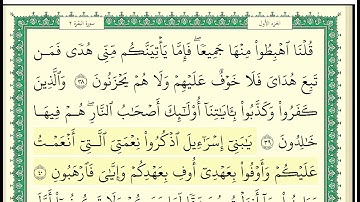 الجزء الأول سورة البقرة ٢
قُلْنَا ٱهْبِطُوا۟ مِنْهَا جَمِيعًا ۖ فَإِمَّا يَأْتِيَنَّكُم مِّنِّى هُدًى فَمَن
تَبِعَ هُدَاىَ فَلَا خَوْفٌ عَلَيْهِمْ وَلَا هُمْ يَحْزَنُونَ ٣٨ وَٱلَّذِينَ
كَفَرُوا۟ وَكَذَّبُوا۟ بِـَٔايَـٰتِنَآ أُو۟لَـٰٓئِكَ أَصْحَـٰبُ ٱلنَّارِ ۖ هُمْ فِيهَا
خَـٰلِدُونَ ٣٩ يَـٰبَنِىٓ إِسْرَٰٓءِيلَ ٱذْكُرُوا۟ نِعْمَتِىَ ٱلَّتِىٓ أَنْعَمْتُ
عَلَيْكُمْ وَأَوْفُوا۟ بِعَهْدِىٓ أُوفِ بِعَهْدِكُمْ وَإِيَّـٰىَ فَٱرْهَبُونِ ٤٠